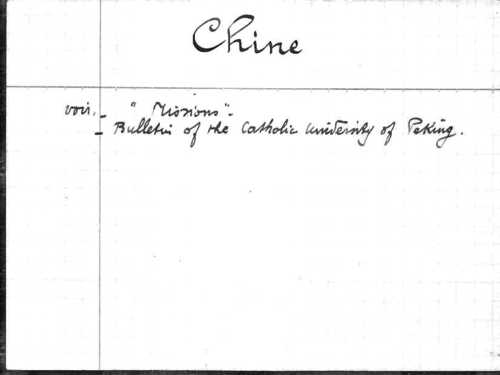 Chine
voir. - "Missions".
- Bulletin of the Catholic University of Peking.